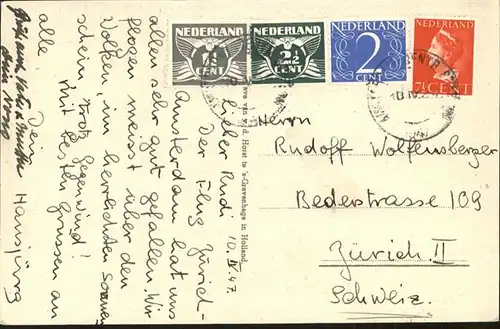 NEDERLAND
1½
CENT
NEDERLAND
2½
CENT
NEDERLAND
2
CENT
NEDERLAND
7½ CENT
10.IV.47.
Lieber Rudi
Der Flug Zürich-
Amsterdam hat uns
allen sehr gut gefallen. Wir
flogen meist über den
Wolken, im herrlichsten Sonnen-
schein trotz Gegenwind!
Mit besten Grüssen an
alle,
Dein
Hansjürg
v. d. Horst te 's-Gravenhage in Holland.
Herrn
Rudolf Wolfensberger
Bederstrasse 109
Zürich II
Schweiz.